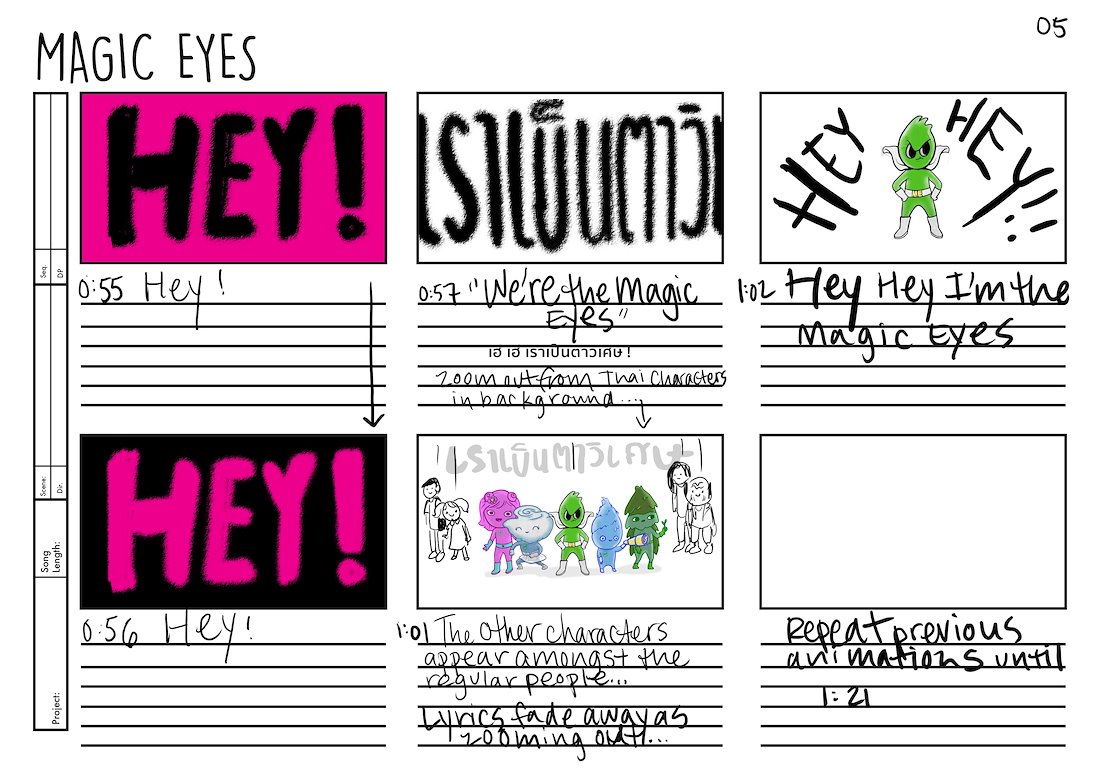 05
MAGIC EYES
Seq.
DP
Scene:
Dir.
Song Length:
Project:
HEY!
0:55 Hey!
HEY!
0:56 Hey!
เราเป็นตาวิเ
0:57 "We're the Magic
Eyes"
เฮ เฮ เราเป็นตาวิเศษ !
zoom out from Thai characters
in background...
เราเป็นตาวิเศษ
1:01 The other characters
appear amongst the
regular people...
Lyrics fade away as
zooming out...
HEY HEY!!
1:02 Hey Hey I'm the
Magic Eyes
Repeat previous
animations until
1:21